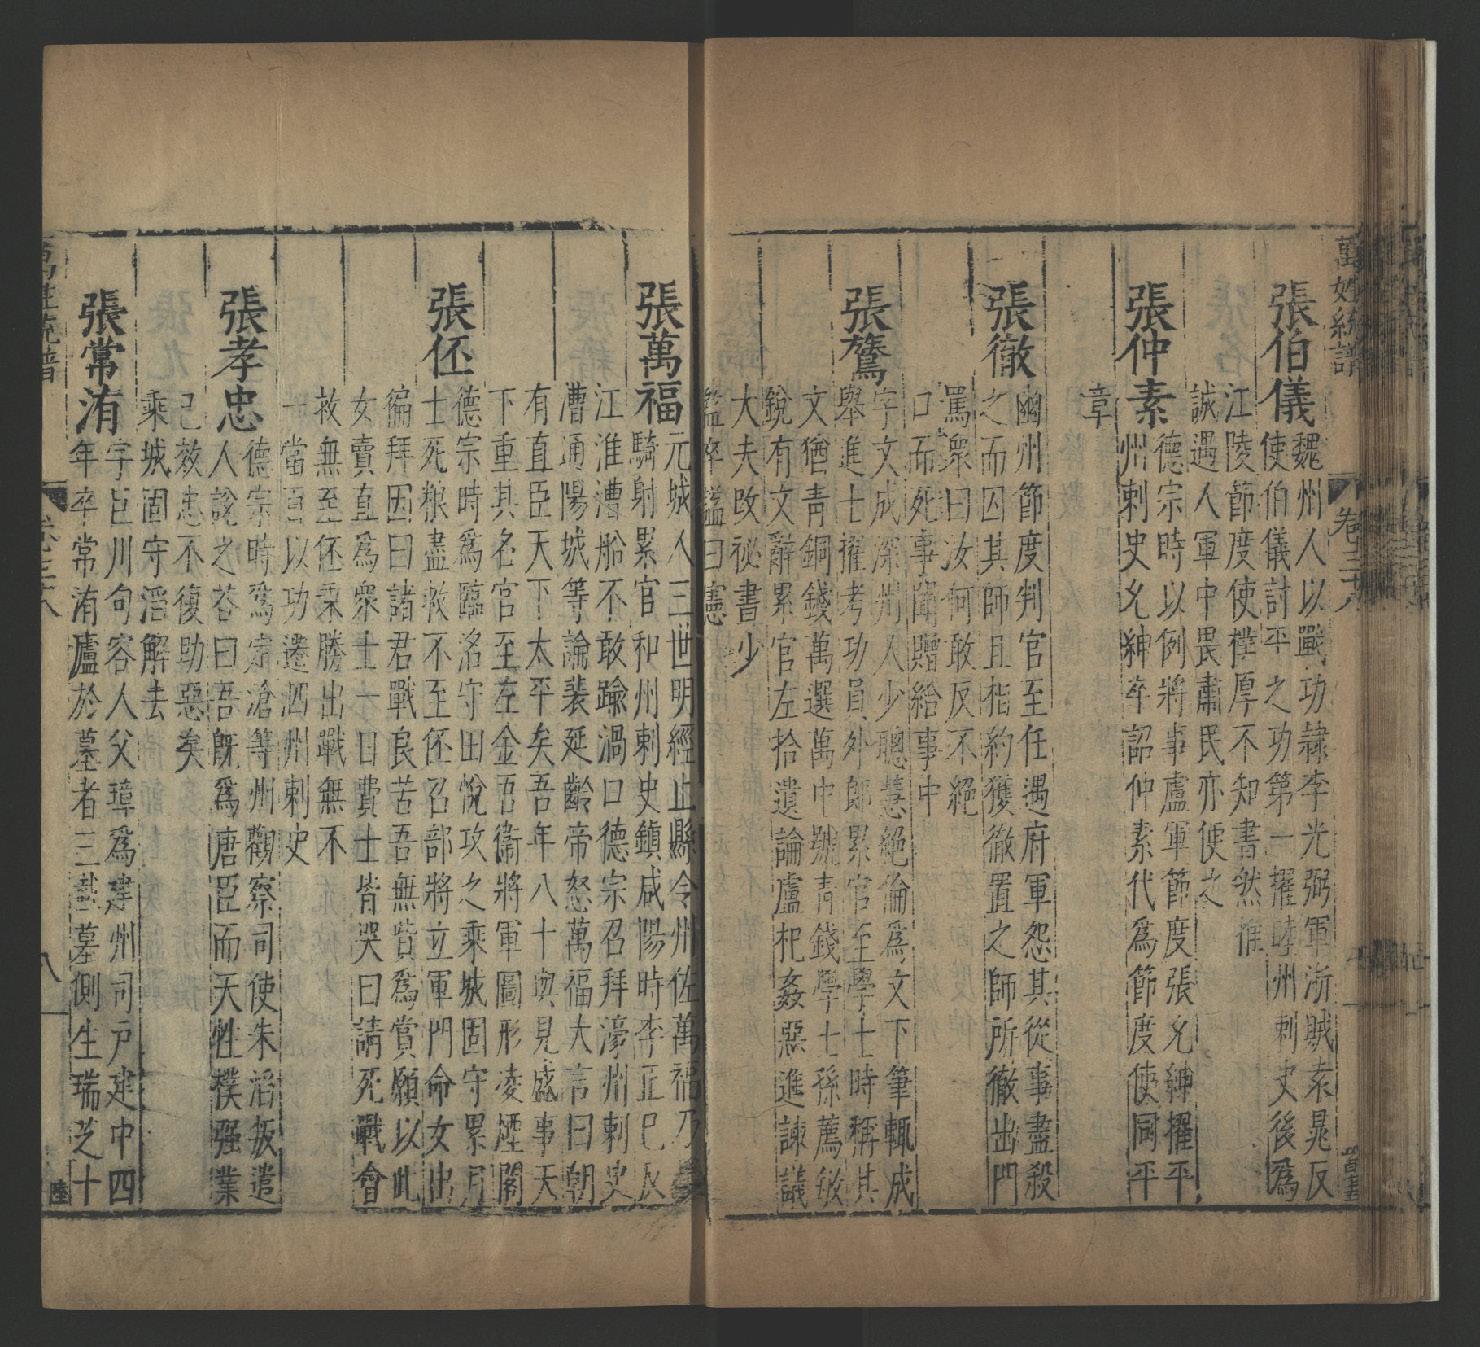 萬姓統譜 卷三十八
張伯儀 魏州人以戰功隸李光弼軍浙賊袁晁反
使伯儀討平之功第一擢睦州刺史後為
江陵節度使樸厚不知書然推
誠遇人軍中畏肅民亦便之
張仲素 德宗時以例將事盧軍節度張允紳擢平
州刺史允紳卒詔仲素代為節度使同平
章
張徹 幽州節度判官至任遇府軍怨其從事盡殺
之而囚其師且相約獲徹置之師所徹出門
罵衆曰汝何敢反不絕
口而死事聞贈給事中
張鷟 字文成深州人少聰慧絕倫為文下筆輒成
舉進士擢考功員外郎累官至學士時稱其
文猶青銅錢萬選萬中號青錢學士孫薦敏
銳有文辭累官左拾遺論盧杞姦惡進諫議
大夫改祕書少
監卒謚曰憲
張萬福 元城人三世明經止縣令州佐萬福乃
騎射累官和州刺史鎮咸陽時李正已反
江淮漕船不敢踰渦口德宗召拜濠州刺史
漕通陽城等論裴延齡帝怒萬福大言曰朝
有直臣天下太平矣吾年八十與見盛事天
下重其名官至左金吾衛將軍圖形凌煙閣
張伾 德宗時為臨洺守田悅攻之乘城固守累月
士死粮盡救不至伾召部將立軍門命女出
徧拜因曰諸君戰良苦吾無貲為賞願以此
女賣直為衆士一日費士皆哭曰請死戰會
救無至伾乘勝出戰無不
一當百以功遷泗州刺史
張孝忠 德宗時為定滄等州觀察司使朱滔叛遣
人說之荅曰吾既為唐臣而天性樸强業
已效忠不復助惡矣
乘城固守滔解去
張常洧 字巨川句容人父璋為建州司戶建中四
年卒常洧廬於墓者三載墓側生瑞芝十
萬姓統譜 卷三十八 八